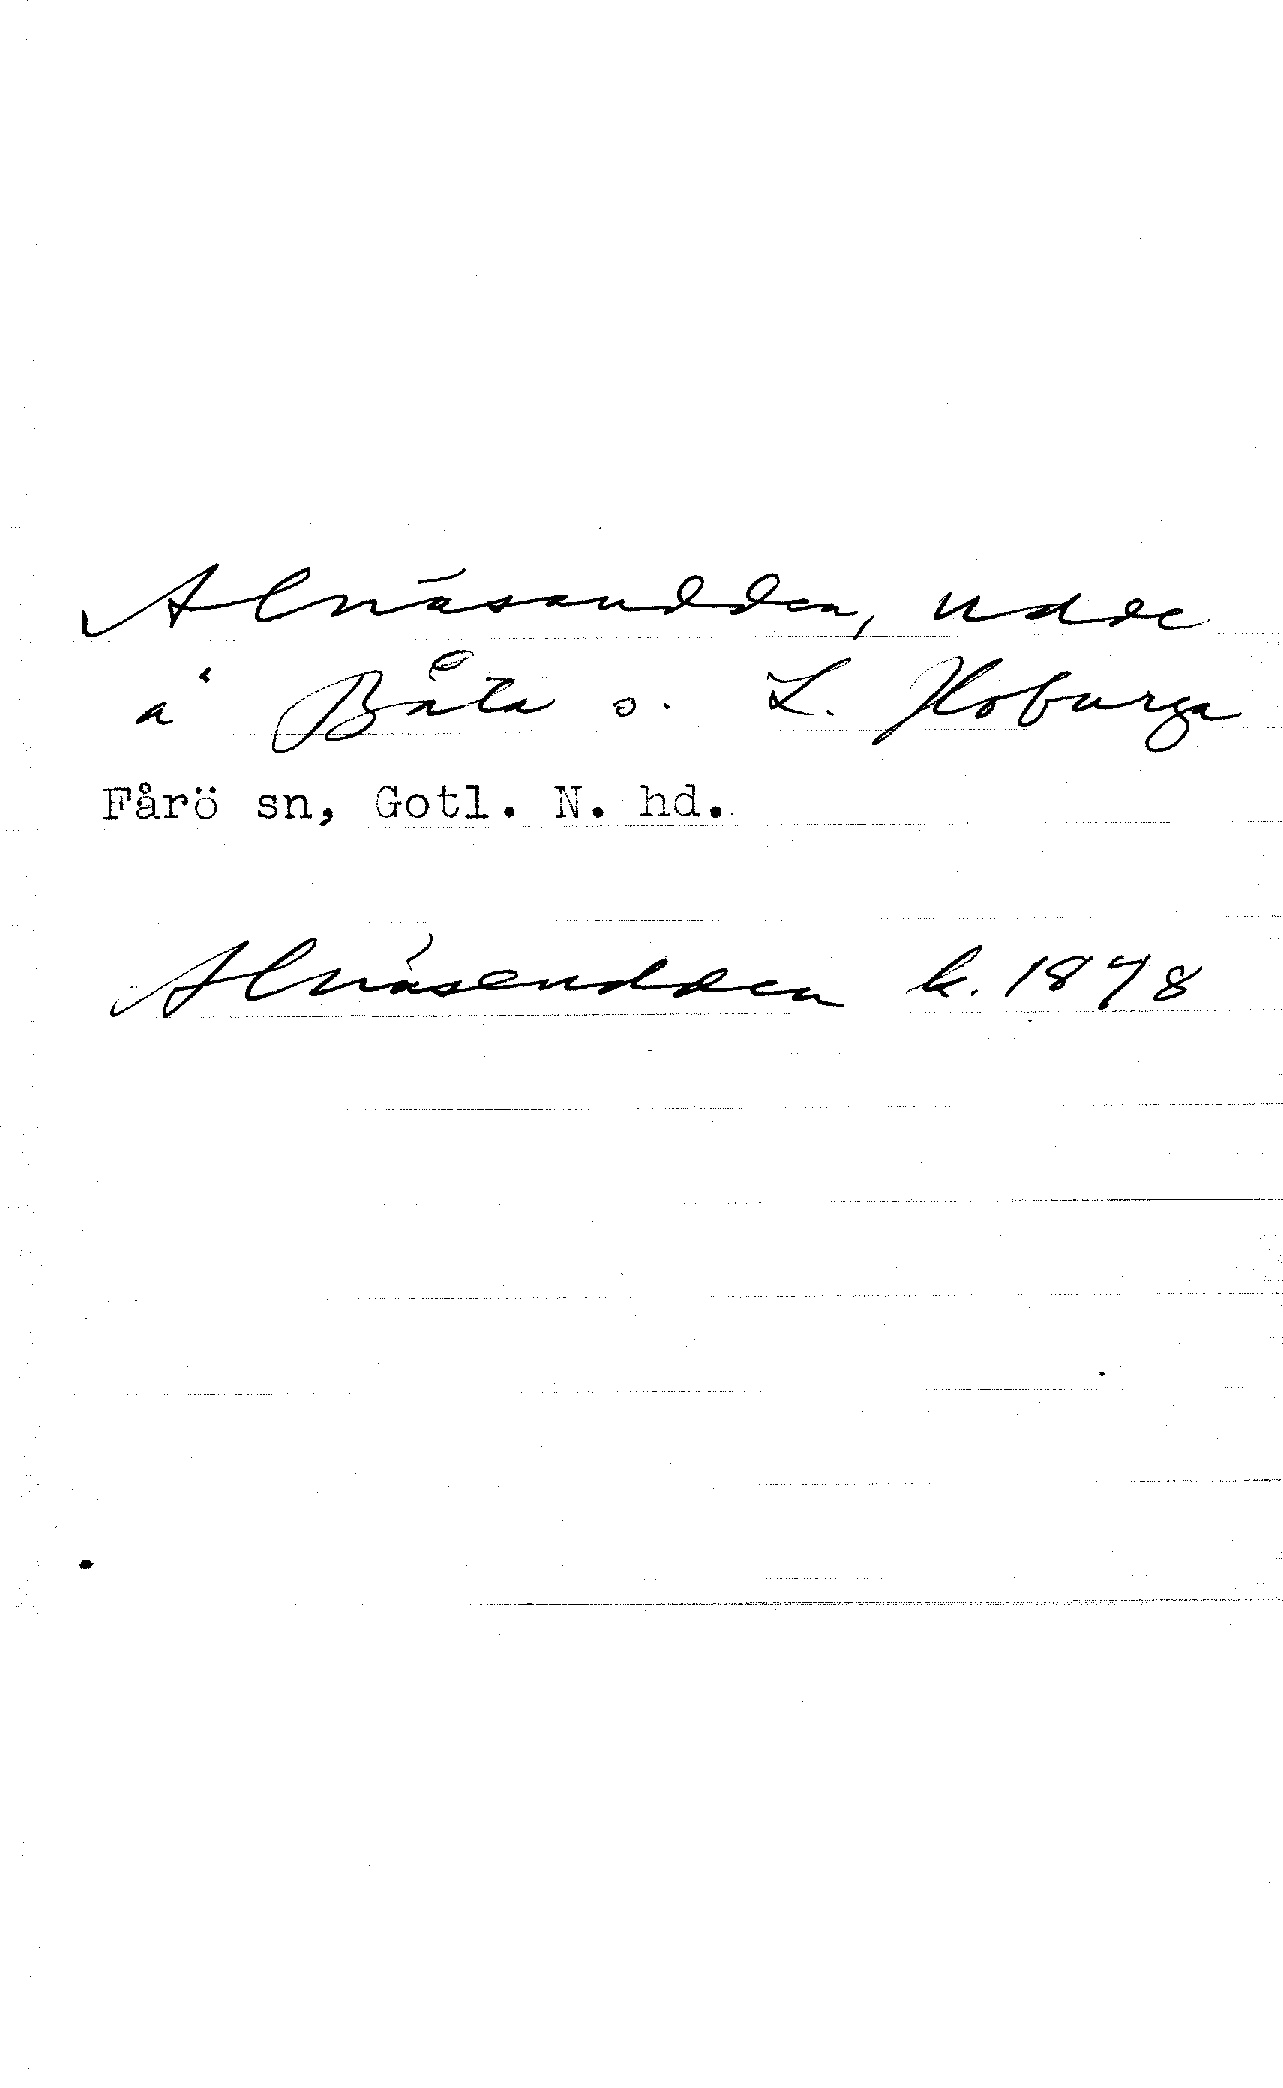 Alnäsaudden, udde
å Båta o. L. Hoburga
Fårö sn, Gotl. N. hd.
Alnäseudden k. 1878